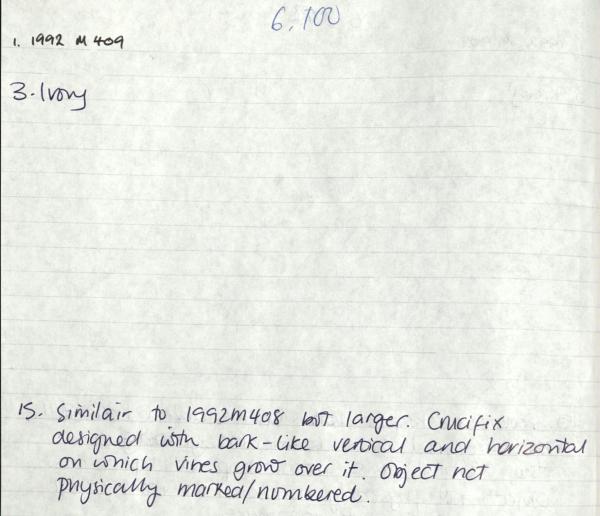 6,100
1. 1992 M 409
3. Ivory
15. Similair to 1992M408 but larger. Crucifix
designed with bark-like vertical and horizontal
on which vines grow over it. Object not
physically marked/numbered.